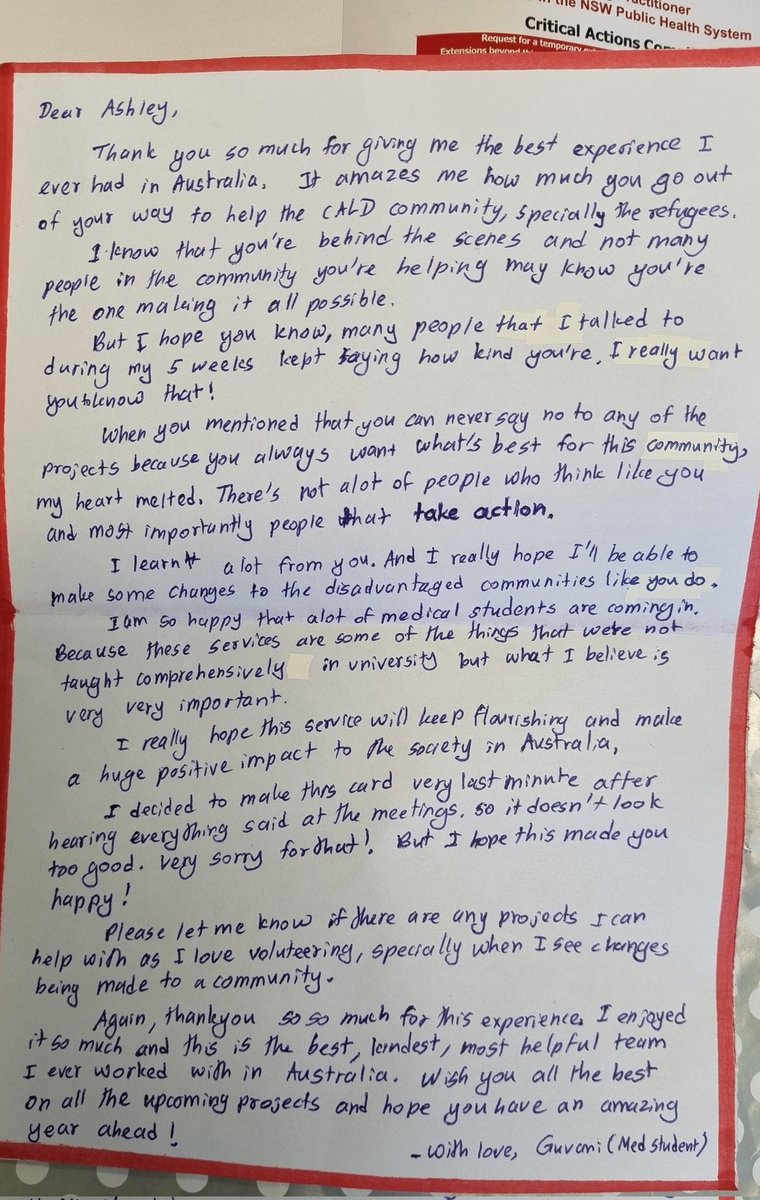 actitioner
in the NSW Public Health System
Critical Actions
Request for a temporary
Extensions beyond
Dear Ashley,
Thank you so much for giving me the best experience I
ever had in Australia. It amazes me how much you go out
of your way to help the CALD community, specially the refugees.
I know that you're behind the scenes and not many
people in the community you're helping may know you're
the one making it all possible.
But I hope you know, many people that I talked to
during my 5 weeks kept saying how kind you're. I really want
you to know that!
When you mentioned that you can never say no to any of the
projects because you always want what's best for this community,
my heart melted. There's not alot of people who think like you
and most importantly people that take action.
I learnt alot from you. And I really hope I'll be able to
make some changes to the disadvantaged communities like you do.
I am so happy that alot of medical students are coming in.
Because these services are some of the things that were not
taught comprehensively in university but what I believe is
very very important.
I really hope this service will keep flourishing and make
a huge positive impact to the society in Australia,
I decided to make this card very last minute after
hearing everything said at the meetings. so it doesn't look
too good. Very sorry for that! But I hope this made you
happy!
Please let me know if there are any projects I can
help with as I love voluteering, specially when I see changes
being made to a community.
Again, thankyou so so much for this experience. I enjoyed
it so much and this is the best, kindest, most helpful team
I ever worked with in Australia. Wish you all the best
on all the upcoming projects and hope you have an amazing
year ahead!
- With love, Guvani (Med student)